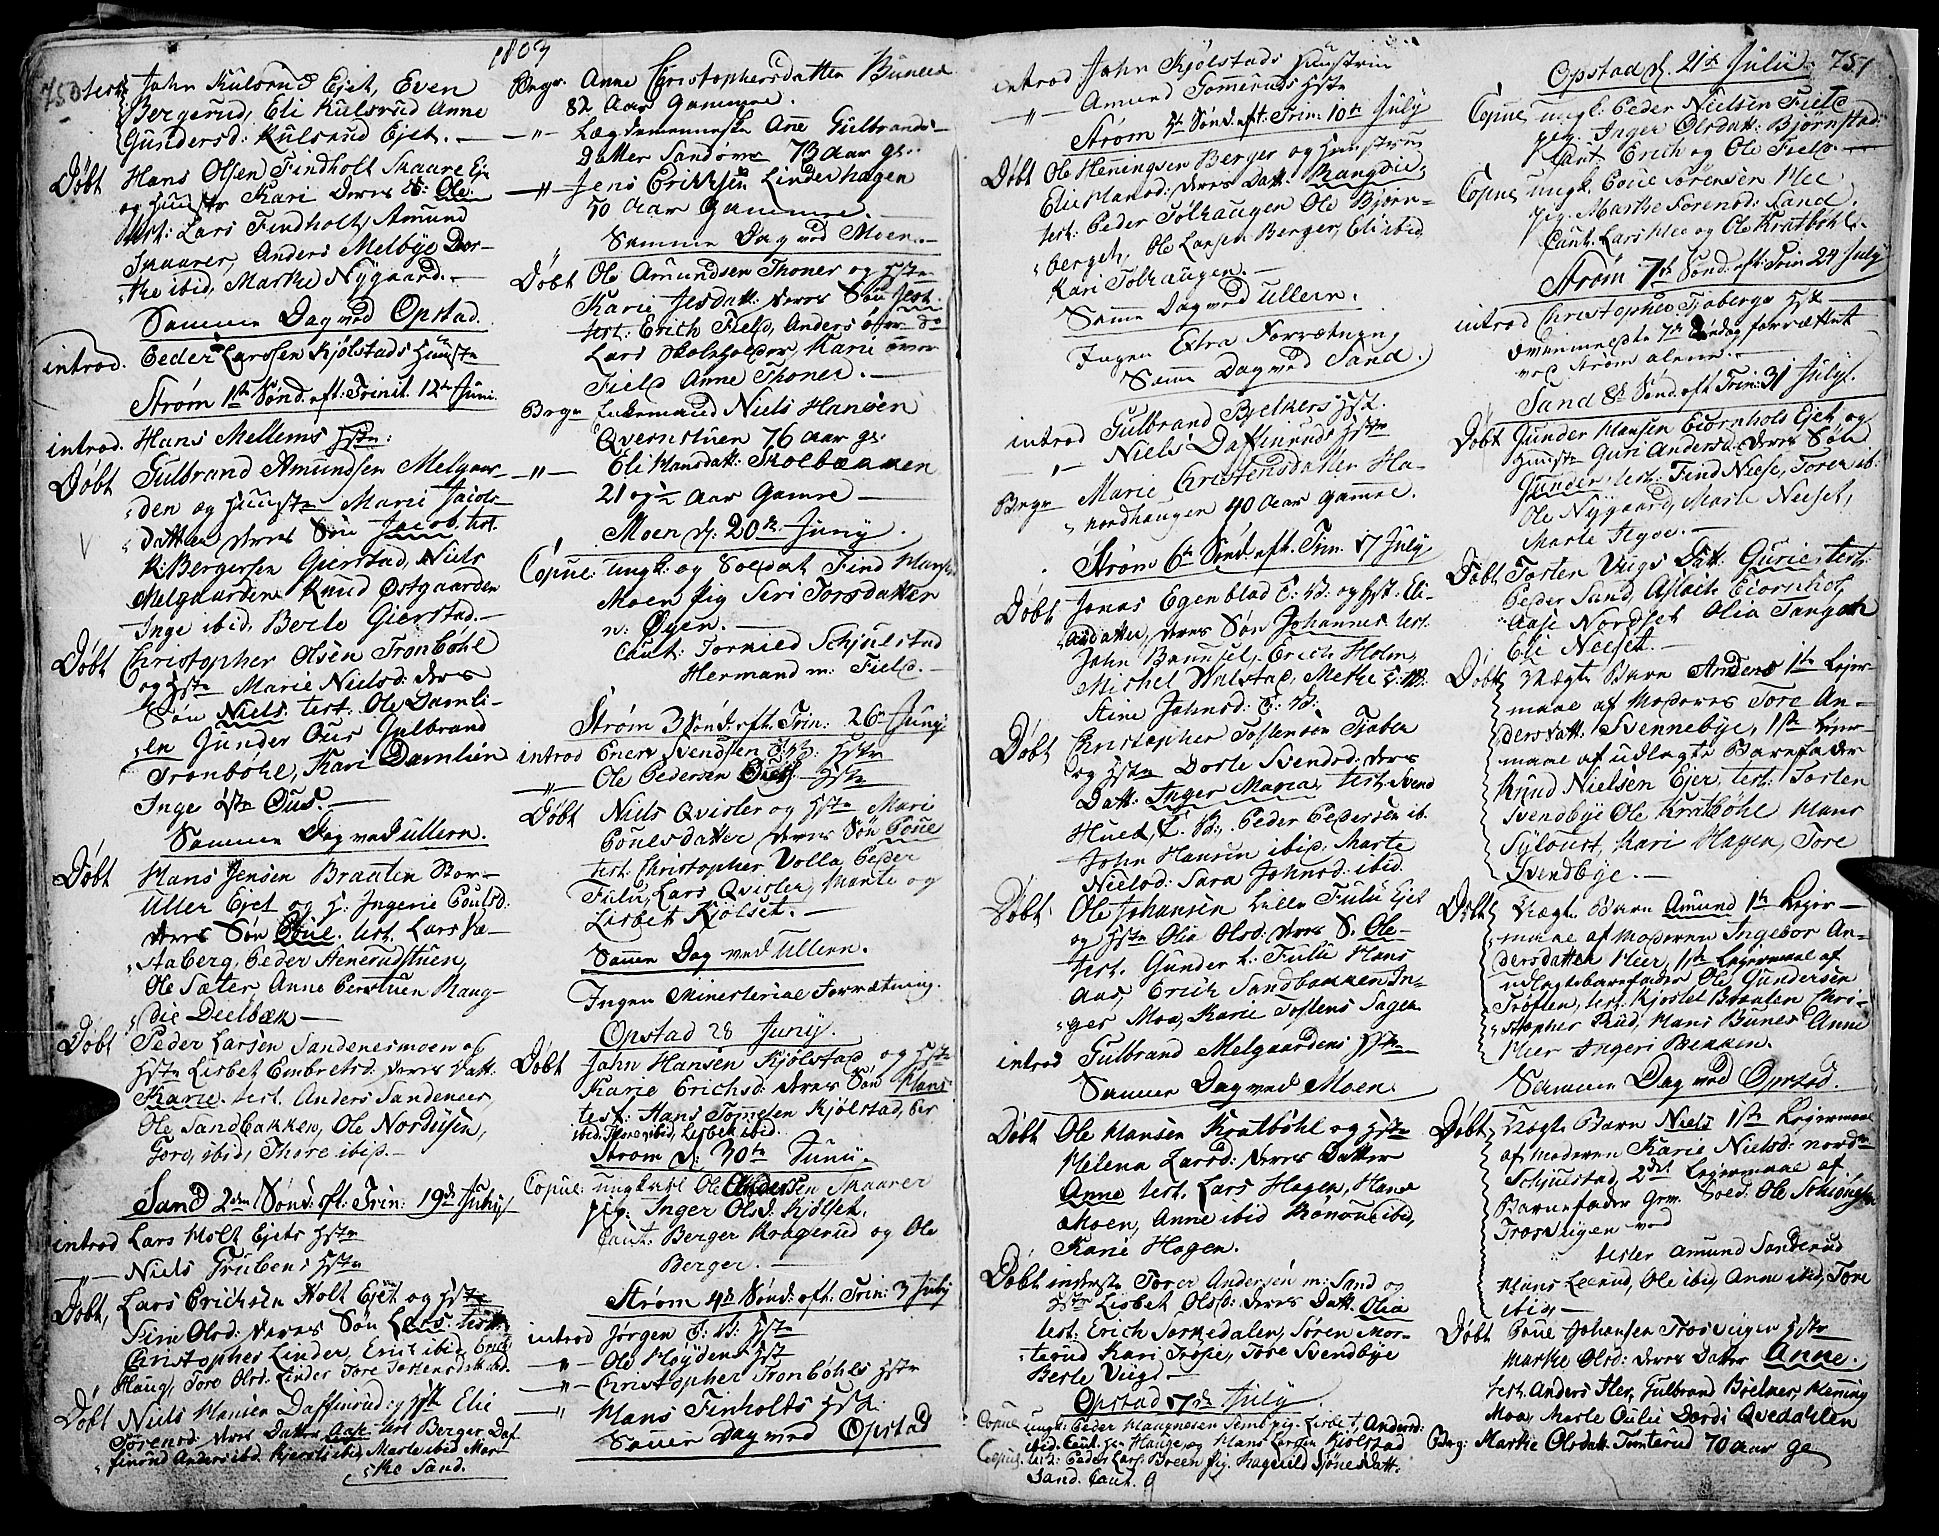 1803
750 test: John Kulsrud Ejet, Even
Bergerud, Eli Kulsrud Anne
Gundersd: Kulsrud Ejet.
Døbt Hans Olsen Findholt Skaare Eje
og Hustr Kari deres S: Ole.
test: Lars Findholt, Amund
Skaarer, Anders Melbye Dor-
the ibid, Marthe Nygaard.
Samme Dag ved Opstad.
introd. Peder Larssen Kjølstads Hustr
Strøm 1ste Sønd: eft: Trinit. 12te Juni.
introd. Hans Mellems Hstr:
Døbt Gulbrand Amundsen Melgaar-
den og Hustr Marie Jacobs-
datter deres Søn Jacob. test.
K: Bergersen Gierstad, Niels
Melgaarden Knud Østgaarden
Inge ibid, Berte Gierstad.
Døbt Christopher Olsen Tronbøhl
og Hstr Marie Nielsd: deres
Søn Niels test: Ole Damli-
en Gunder Ous Gulbrand
Tronbøhl, Kari Damlien
Inge Ous.
Samme Dag ved Ullern.
Døbt Hans Jensen Braaten Stor-
Uller Ejet og H: Ingerie Poulsd:
deres Søn Poul. test. Lars
Peder Stenerudstuen,
Ole Sæter Anne Perstuen Rang-
die Deelbæk
Døbt Peder Larsen Sandenesmoen og
Hstr Lisbet Embretsd: deres Datt:
Karie. test. Anders Sandenes,
Ole Sandbakken, Ole Nordusen,
Toro, ibid, Thore ibid.
Sand 2den Sønd: eft: Trin: 19de July
introd Lars Holt Ejets Hstr
Niels Grubens Hstr
Døbt, Lars Erichsen Holt Ejet og Hstr
Siri Olsd: deres Søn Lars. test
Christopher Linder, Erik ibid, Erik
Haug, Tore Olsd: Linder Tore ibid.
Døbt Niels Hansen Daffinrud: Hstr Elie
Sørensd: deres Datter Aase test Berger Daf
finrud Anders ibid Kjersti ibid Marte ibid Mar-
the Sand.
Begr: Anne Christophersdatter Bunes
82 Aar Gammel.
Lægdemenneske Ane Gulbrands-
Datter Sandom 73 Aar gl.
Jens Erikssen Linderhagen
50 Aar Gammel.
Samme Dag ved Moen.
Døbt Ole Amundsen Thoner og Hstr
Karie Jensdatt: deres Søn
test: Erich Field, Anders
Lars Skoleholder, Marie
Field Anne Thoner.
Begr Niels Hansen
Qvernstuen 76 Aar gl:
Eli Hansdatt: Skolbækken
21 og ½ Aar Gamle
Moen d: 20de Juny
Copul: ungk: og Soldat Find Hansen
Moen pig Seri Torsdatter
n: Øyen.
Caut: Torkild Schjulstad
Hermand m: Field.
Strøm 3 Sønd: eft: Trin: 26 Juny
introd Enen Svendsen Hstr
Ole Pedersen Hstr
Døbt Niels Qvisler og Hstr Mari
Poulsdatter deres Søn Poul
test. Christopher Volla Peder
Fulu, Lars Qvisler, Marte og
Lisbet Kjølset.
Samme Dag ved Ullern.
Ingen Ministerial Forretning.
Opstad 28 Juny.
Døbt John Hansen Kjølstad, og Hstr
Karie Erichsd: deres Søn Hans
test: Hans Tomesen Kjølstad, Per
ibid. Thore ibid, Lisbet ibid.
Strøm d: 30te Juny
Copul: ungkarl Ole Andersen Skaarer
pig: Inger Olsd: Kjølset.
Caut: Berger Kragerud og Ole
Berger.
Strøm 4de Sønd: eft: Trin: 3 July
introd Jørgen Hstr
Ole Høydens Hstr
Christopher Tronbøhls Hstr
Hans Finholts Hstr:
Samme Dag ved Opstad
introd John Kjølstads Hustrue
Amund Tomteruds Hstr
Strøm 5te Sønd: eft: Trin: 10de July
Døbt Ole Heningsen Berger og Hustrue
Elie Hansd: deres Datt: Rangdie,
test: Peder Tolhaugen Ole Bjørn-
berget, Ole Larsen Berger, Eli ibid,
Kari Tolhaugen.
Samme Dag ved Ullern.
Ingen Extra Forretning
Samme Dag ved Sand.
introd Gulbrand Bjelkers Hstr.
Niels Daffinruds Hstr
Begr Marie Christensdatter Ha-
nordhaugen 40 Aar gammel.
Strøm 6te Sønd: eft: Trin. 17 July
Døbt Jonas Egenblad og Hst: Eli-
asdatter, deres Søn Johannes test.
John Baunsel, Erich Holm,
Michel Walstad, Methe
Stine Johnsd:
Døbt Christopher Tostensen Tjaber
og Hstr Dorte Svendsd: deres
Datt: Inger Maria, test: Svend
Huet, Peder Pedersen ib.
John Hansen ibid, Marte
Nielsd: Sara Johnsd: ibid.
Døbt Ole Johansen Lille Fulu Ejet
og Hstr Olia Olsd: deres S. Ole-
test. Gunder L: Fulu Hans
Aas, Erich Sandbakken In-
ger Moe, Karie Tostens Sagen
introd Gulbrand Melgaardens Hstr
Samme Dag ved Moen.
Døbt Ole Hansen Kratbøhl og Hstr
Helena Larsd: deres Datter
Anne test. Lars Hagen, Hans
Moen, Anne ibid ibid,
Karie Hagen.
Døbt inderst Torer Andersen m: Sand og
Hstr Lisbet Olsd: deres Datt. Olia
test: Erich Sorkedalen, Søren Mor-
terud Kari Trope, Tore Svendbye
Berte Viigs
Opstad 17de July
Copul ungk: Peder
ibid. Caut: Hauge og Hans Larsen Kjølstad
Copul. Peder Lars: Breen pig. Ragnild
Sand. Caut. 9
Opstad d. 21de July 751
Copul ungk: Peder Nielsen Field
pig: Inger Olsdatt: Bjørnstad
Caut. Erich og Ole Field.
Copul ungk. Poul Sørensen Mee
pig: Marthe Sørensd: Sand.
Caut. Lars Mee og Ole Kratbøhl.
Strøm 7de Sønd: eft: Trin 24 July
introd Christopher Tjabergs Hstr
ovenmeldte 7de Søndag forrettet
ved Strøm alene.
Sand 8de Sønd: eft Trin: 31 July.
Døbt Gunder Hansen Eiornholt Ejet og
Hustr Guri Andersd: deres Søn
Gunder test: Find Neese, Torer ib:
Ole Nygaard, Marte Neeset,
Marte
Døbt Torsten Viigs Datt: Gurie test:
Peder Sand, Aslach Eiornholt
Aase Nordset Olia Tangen
Eli Neeset.
Døbt Uægte Barn Anders 1ste Lejer-
maal af Moderen Tore An-
dersdatt. Svennebye, 1ste Lejer-
maal af udlagte Barnefader
Knud Nielsen Ejer, test: Torsten
Svendbye Ole Kratbøhl Hans
Kari Hagen, Tore
Svendbye.
Døbt Uægte Barn Amund 1ste Lejer-
maal af Moderen Ingebor An-
dersdatter Meer, 1ste Lejermaal af
udlagtebarnefader Ole Gundersen
Trøften, test: Kjostel Braaten Chri-
stopher Rud, Hans Bunes Anne
Meer Ingeri Bekken.
Samme Dag ved Opstad.
Døbt Uægte Barn Niels 1ste Lejermaal
af moderen Karie Nielsd: nordre
Schjulstad, 2det Lejermaal af
Barnefader Soed: Ole
Trosvigen ved
tester Amund Sanderud
Hans Leerud, Ole ibid, Anne ibid, Tore
ibid,
Døbt Poul Johansen Trosvigen Hstr
Marthe Olsd: deres Datter Anne.
test. Anders Her, Gulbrand Henning
Moe, Marte Qvedahlen
Beg: Marthe Olsdatt. Tomterud 70 aar gl